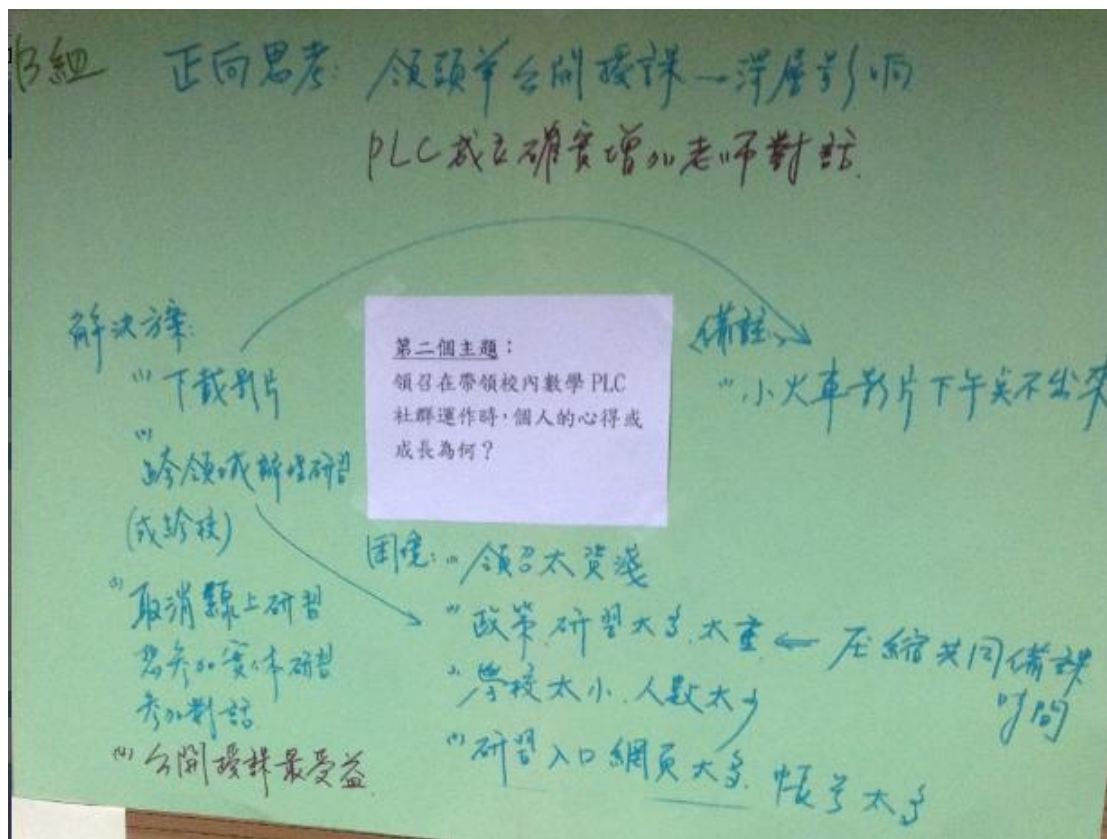 B組 正向思考: 領頭羊公開授課→深層影响
PLC成立確實增加老師對話.
解決方案:
(1) 下載影片
(2) 跨領域辦理研習
(或跨校)
(3) 取消線上研習
想參加實体研習
參加對話
(4) 公開授課最受益.
第二個主題：
領召在帶領校內數學 PLC
社群運作時，個人的心得或
成長為何？
備註:
(1) 小火車影片下午来不出來
困境: (1) 領召太資淺
(2) 政策.研習太多.太重 ← 压縮共同備課
时间
(3) 學校太小.人數太少
(4) 研習入口網頁太多. 帳号太多